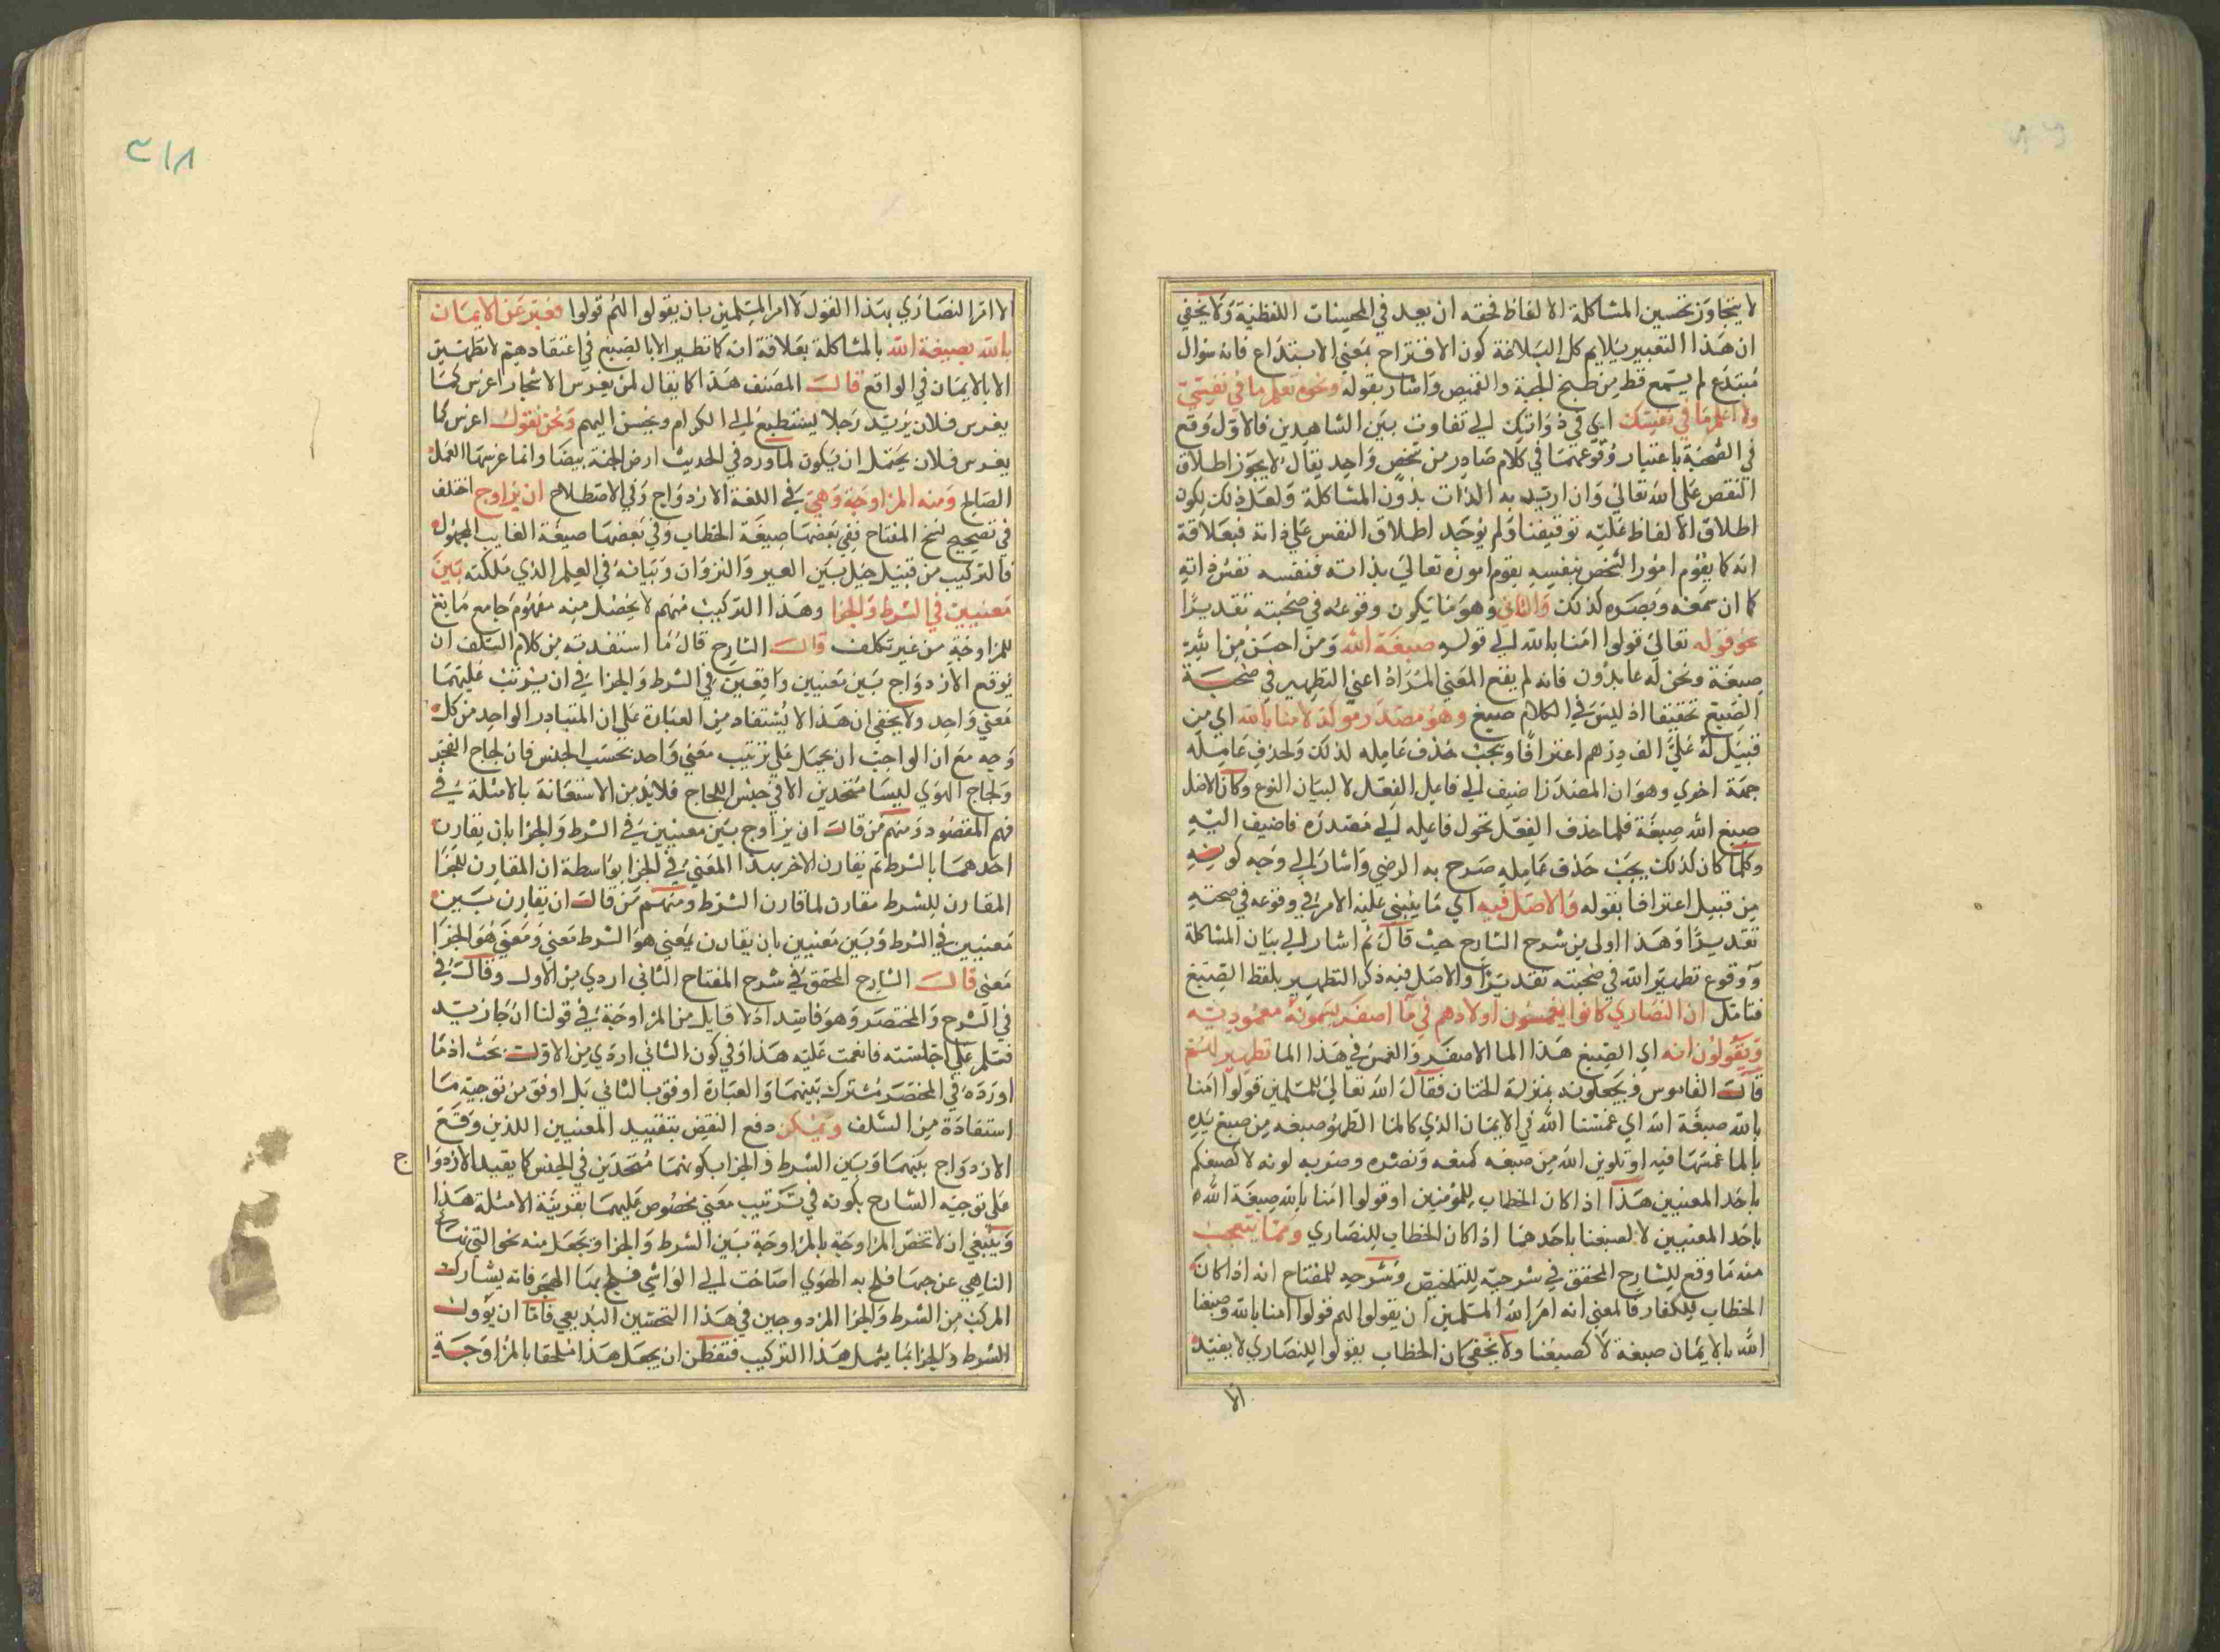 لا يتجاوز تحسين المشاكلة الالفاظ فحقه ان يعد في المحسنات اللفظية ولا يخفي
ان هذا التعبير يلايم كل البلاغة كون الاقتراح بمعني الابتداع فانه سوال
مبتدع لم يسمع قط من طبخ الجبة والقميص واشار بقوله ونحوه تعلم ما في نفسي
ولا اعلم ما في نفسك اي في ذواتك الي تفاوت بين الشاهدين فالاول وقع
في الصحبة باعتبار وقوعهما في كلام صادر من شخص واحد يقال لا يجوز اطلاق
النفس علي الله تعالي وان اريد به الذات بدون المشاكلة ولعل ذلك لكون
اطلاق الالفاظ عليه توقيفنا ولم يوجد اطلاق النفس علي ذاته فبعلاقة
انه كما يقوم امور الشخص بنفسه يقوم اموره تعالي بذاته فنفسه نفس ذاته
كما ان سمعه وبصره كذلك والثاني وهو ما يكون وقوعه في صحبته تقديرا
نحو قوله تعالي قولوا امنا بالله الي قوله صبغة الله ومن احسن من الله
صبغة ونحن له عابدون فانه لم يقع المعني المراد اعني التطهير في صحبة
الصبغ تحقيقا اذ ليس في الكلام صبغ وهو مصدر موكد لامنا بالله اي من
قبيل له علي الف درهم اعترافا ويجب حذف عامله لذلك ولحذف عامله
جهة اخري وهو ان المصدر اضيف الي فاعل الفعل لا لبيان النوع وكان الاصل
صبغ الله صبغة فلما حذف الفعل تحول فاعله الي مصدره فاضيف اليه
وكلما كان كذلك يجب حذف عامله صرح به الرضي واشار الي وجه كونه
من قبيل اعترافا بقوله والاصل فيه اي ما يبتني عليه الامر في وقوعه في صحبته
تقديرا وهذا اولى من شرح الشارح حيث قال ثم اشار الي بيان المشاكلة
ووقوع تطهير الله في صحبته تقديرا والاصل فيه ذكر التطهير بلفظ الصبغ
فتامل ان النصاري كانوا يغمسون اولادهم في ما اصفر يسمونه معموديته
ويقولون انه اي الصبغ هذا الما الاصفر والغمس في هذا الما تطهير لهم
قال القاموس ويجعلونه بمنزلة الختان فقال الله تعالي للمسلمين قولوا امنا
بالله صبغة الله اي غمسنا الله في الايمان الذي كالما الطهور صبغه من صبغ يده
بالما غمسها فيه او تلوين الله من صبغه كمنعه ونصره وضربه لونه لا كصبغكم
باحد المعنيين هذا اذا كان الخطاب للمؤمنين او قولوا امنا بالله صبغة الله
باحد المعنيين لا لصبغنا باحدهما اذا كان الخطاب للنصاري ومما يتعجب
منه ما وقع للشارح المحقق في شرحيه للتلخيص وشرحه للمفتاح انه اذا كان
الخطاب للكفار فالمعني انه امر الله المسلمين ان يقولوا لهم قولوا امنا بالله وصبغنا
الله بالايمان صبغة لا كصبغنا ولا يخفي ان الخطاب بقولوا للنصاري لا يفيد
الا
٣١٨
الا امر النصاري بهذا القول لا امر المسلمين بان يقولوا الهم قولوا فعبر عن الايمان
بالله بصبغة الله بالمشاكلة بعلاقة انه كما تطهير الا بالصبغ في اعتقادهم لا تطهير
الا بالايمان في الواقع قال المصنف هذا كما يقال لمن يغرس الاشجار اغرس كما
يغرس فلان يريد رجلا يستطيع الي الكرام ويحسن اليهم ونحن نقول اغرس كما
يغرس فلان يحتمل ان يكون لما ورد في الحديث ارض الجنة بيضا وانما غرسها العمل
الصالح ومنه المزاوجة وهي في اللغة الازدواج وفي الاصطلاح ان يزاوج اختلف
في تصحيح نسخ المفتاح ففي بعضها صيغة الخطاب وفي بعضها صيغة الغايب المجهول
فالتركيب من قبيل حيل بين العير والنزوان وبيانه في العلم الذي ملكته بين
معنيين في الشرط والجزا وهذا التركيب منهم لا يحصل منه مفهوم جامع مانع
للمزاوجة من غير تكلف قال الشارح قال ما استفدته من كلام السلف ان
يوقع الازدواج بين معنيين واقعين في الشرط والجزا في ان يترتب عليهما
معني واحد ولا يخفي ان هذا لا يستفاد من العبارة علي ان المتبادر الواحد من كل
وجه مع ان الواجب ان يحمل علي ترتيب معني واحد بحسب الجنس فان لجاج الهجر
ولجاج الهوي ليسا متحدين الا في جنس اللجاج فلا بد من الاستعانة بالامثلة في
فهم المقصود ومنهم من قال ان يزاوج بين معنيين في الشرط والجزا بان يقارن
احدهما بالشرط ثم يقارن الاخر بهذا المعني في الجزا بواسطة ان المقارن للجزا
المقارن للشرط مقارن لما قارن الشرط ومنهم من قال ان يقارن بين
معنيين في الشرط وبين معنيين بان يقارن بمعني هو الشرط معني ومعني هو الجزا
معنى قال الشارح المحقق في شرح المفتاح الثاني اردي من الاول وقال في
في الشرح والمختصر وهو فاسد اذ لا قايل من المزاوجة في قولنا ان جا زيد
فسلم علي اجلسته فانعمت عليه هذا وفي كون الثاني اردي من الاول بحث اذ ما
اورده في المختصر مشترك بينهما والعبارة اوفق بالثاني بل اوفق من توجيه ما
استفاده من السلف ويمكن دفع النقيض بتقييد المعنيين اللذين وقع
الازدواج بينهما وبين الشرط والجزا بكونهما متحدين في الجنس كما يقيد الازدوا ج
على توجيه الشارح بكونه في ترتيب معني مخصوص عليهما بقرينة الامثلة هذا
وينبغي ان لا تختص المزاوجة بالمزاوجة بين الشرط والجزا ويجعل منه نحو التي نهاها
الناهي عن حبها فلج به الهوي اصاخت الي الواشي فلج بها الهجر فانه يشارك
المركب من الشرط والجزا المزدوجين في هذا التحسين البديعي فاما ان يؤول
الشرط والجزا بما يشمل هذا التركيب فتفطن ان يجعل هذا ملحقا بالمزاوجة